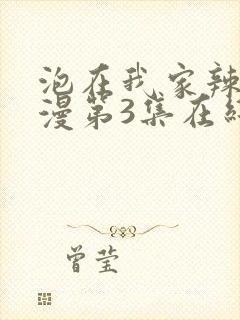 泡在我家辣
漫第3集在
曾莹